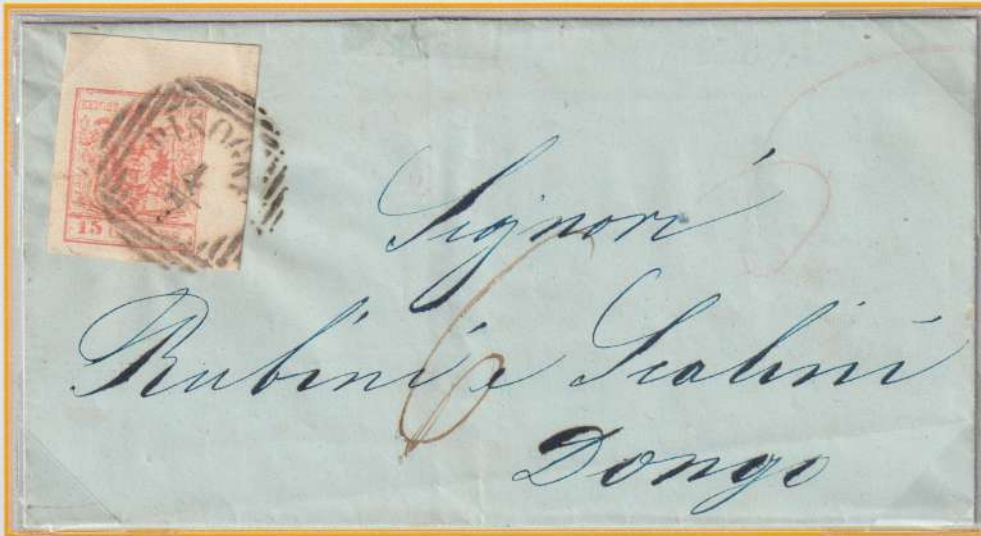 15
PISOGNE
14
Signori
Rubini e Scalini
Dongo
6